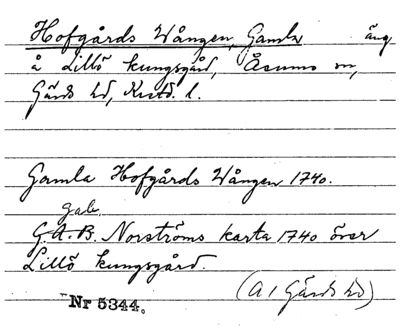 Hofgårds Wången, Gamla äng
å Lillö kungsgård, Åsums sn,
Gärds hd, Krstd. l.
Gamla Hofgårds Wången 1740.
Gab.
G.A.B. Norströms karta 1740 över
Lillö kungsgård.
(A1 Gärds hd)
Nr 5344.